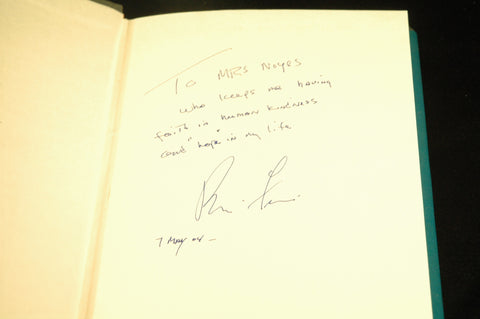 To MRS Noyes
who keeps me having
faith in human kindness
and "hope" in my life
7 May 04 -